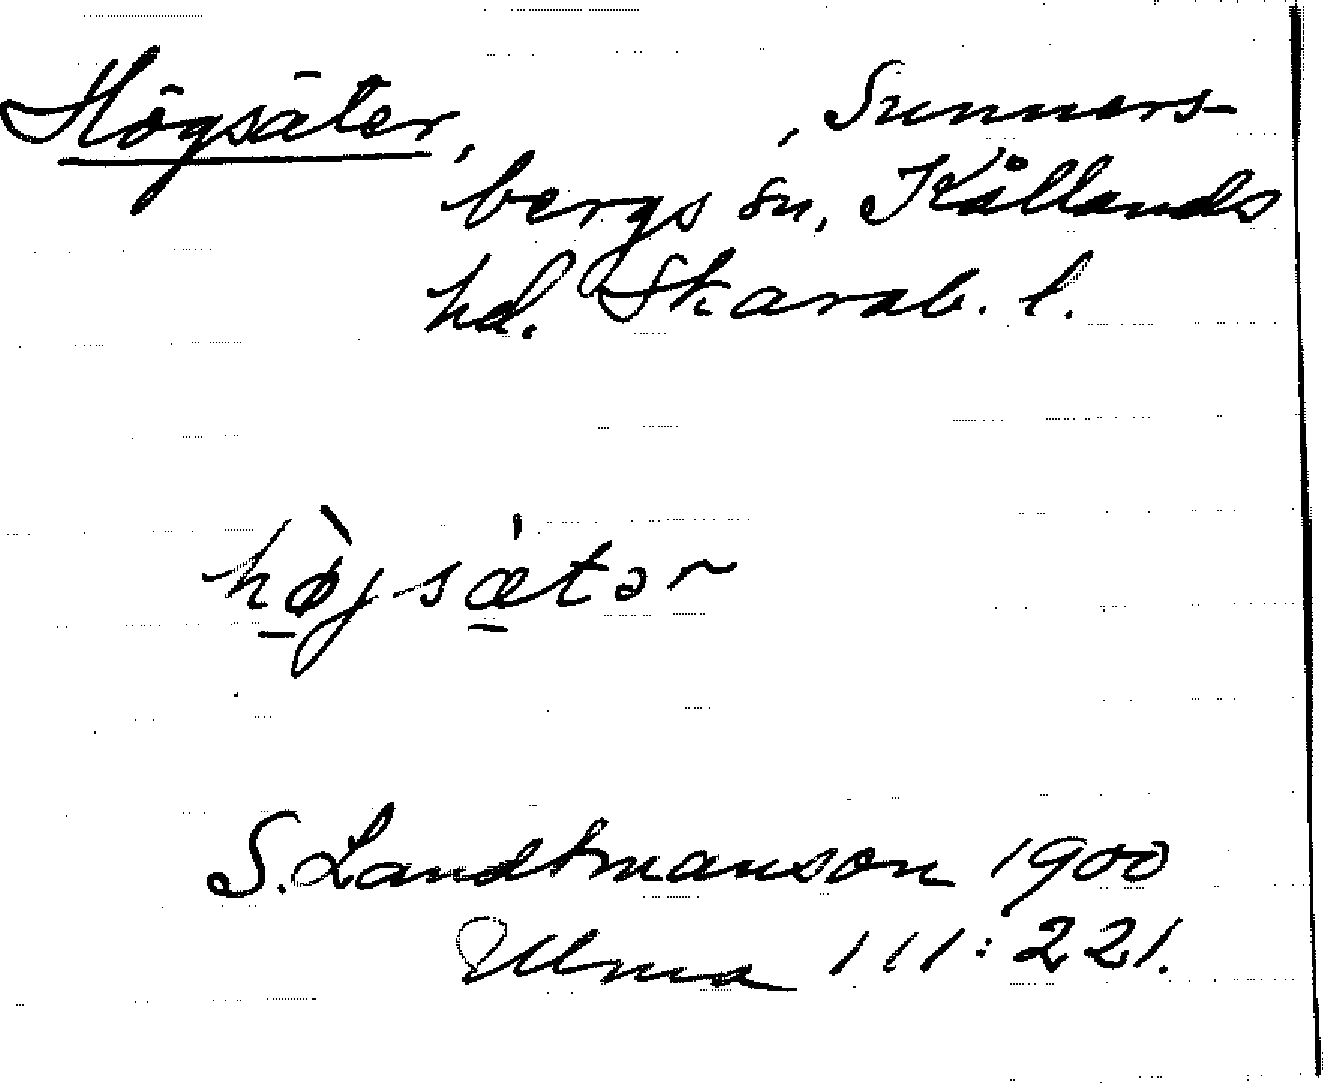 Högsäter, , Sunners-
bergs sn, Kållands
hd. Skarab. l.
hø̱̀jsæ̱̍tər
S. Landtmanson 1900
Ulma 111:221.